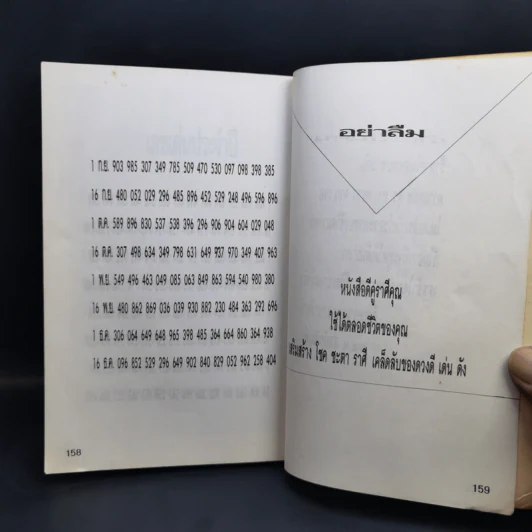 1 ก.ย. 903 985 307 349 785 509 470 530 097 098 398 385
16 ก.ย. 480 052 029 296 485 896 452 529 248 496 596 896
1 ต.ค. 589 896 830 537 538 396 296 906 904 604 029 048
16 ต.ค. 307 498 634 349 798 631 649 937 970 349 407 963
1 พ.ย. 549 496 463 049 085 063 849 863 529 540 980 380
16 พ.ย. 480 862 869 036 039 930 882 230 484 363 292 696
1 ธ.ค. 306 064 649 648 965 398 485 365 864 360 864 938
16 ธ.ค. 096 852 529 296 649 902 840 829 052 962 258 404
158
อย่าลืม
หนังสือดีคู่ราศีคุณ
ใช้ได้ตลอดชีวิตของคุณ
เสริมสร้าง โชค ชะตา ราศี เคล็ดลับของดวงดี เด่น ดัง
159